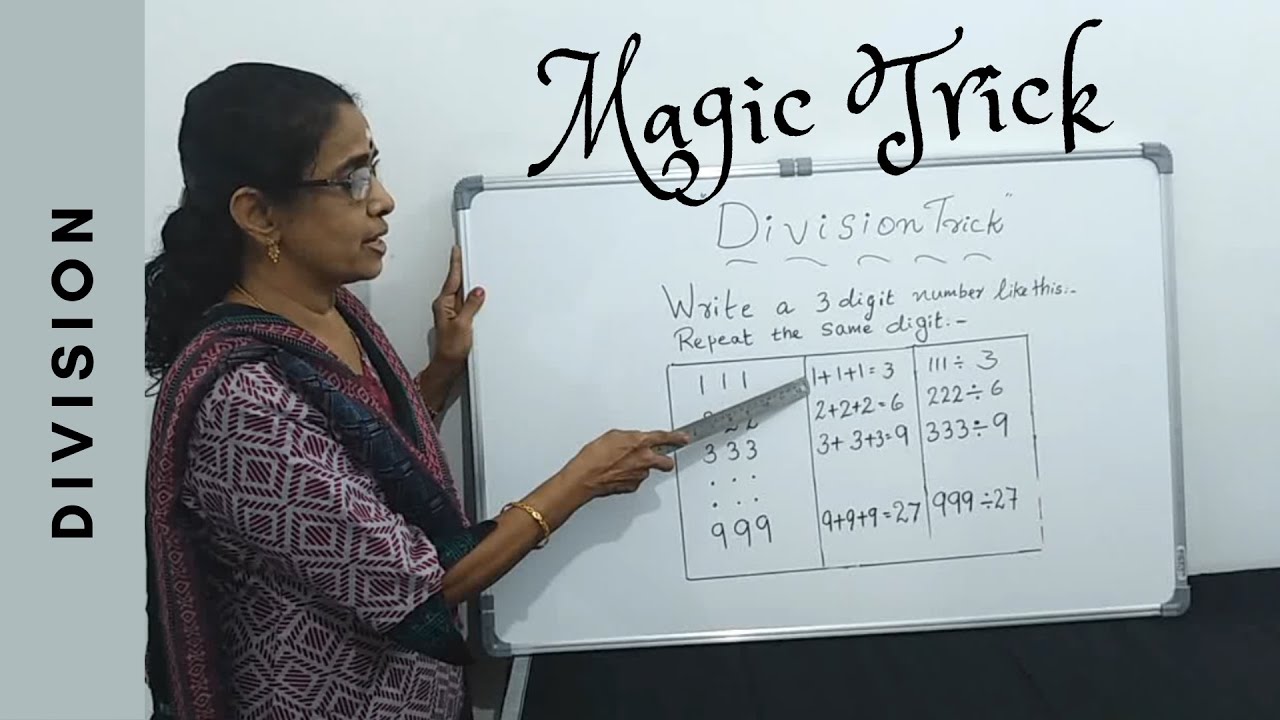 DIVISION
Magic Trick
"Division Trick"
Write a 3 digit number like this:-
Repeat the same digit:-
1 1 1 1+1+1=3 111÷ 3
2 2 2+2+2=6 222÷6
3 3 3 3+3+3=9 333÷9
. . .
. . .
9 9 9 9+9+9=27 999÷27